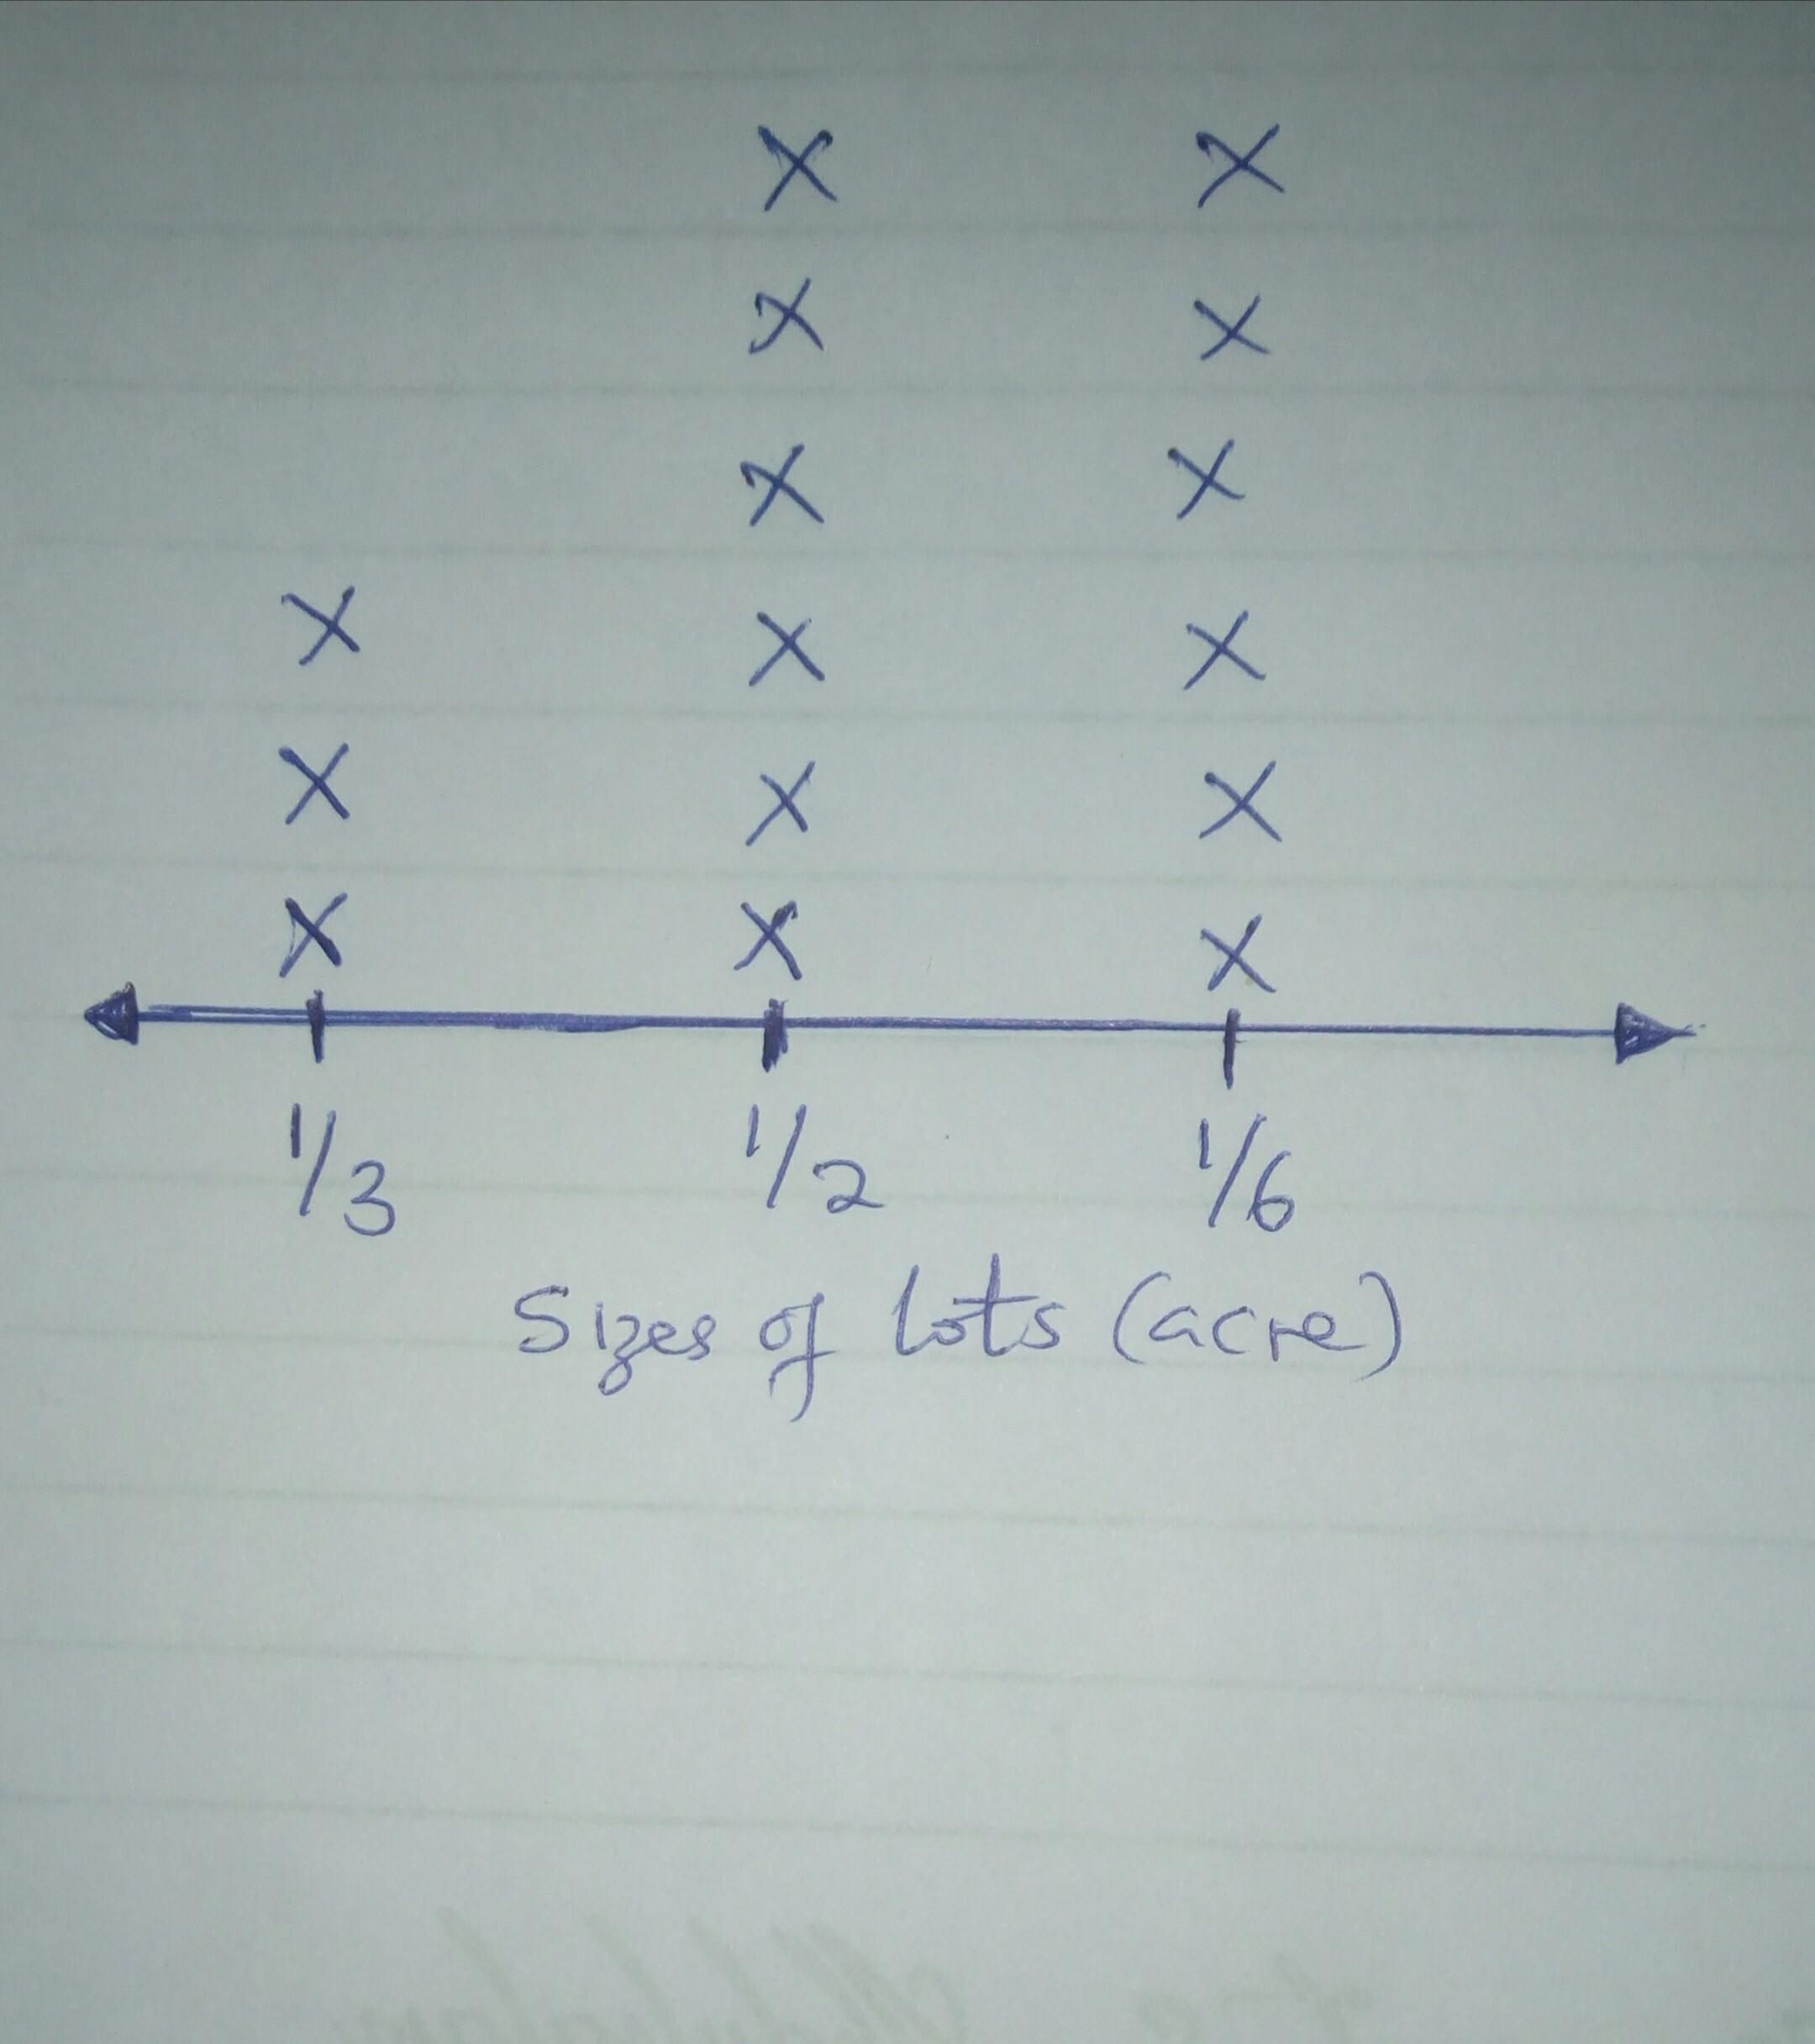 X X
X X
X X
X X X
X X X
X X X
1/3 1/2 1/6
Sizes of lots (acre)